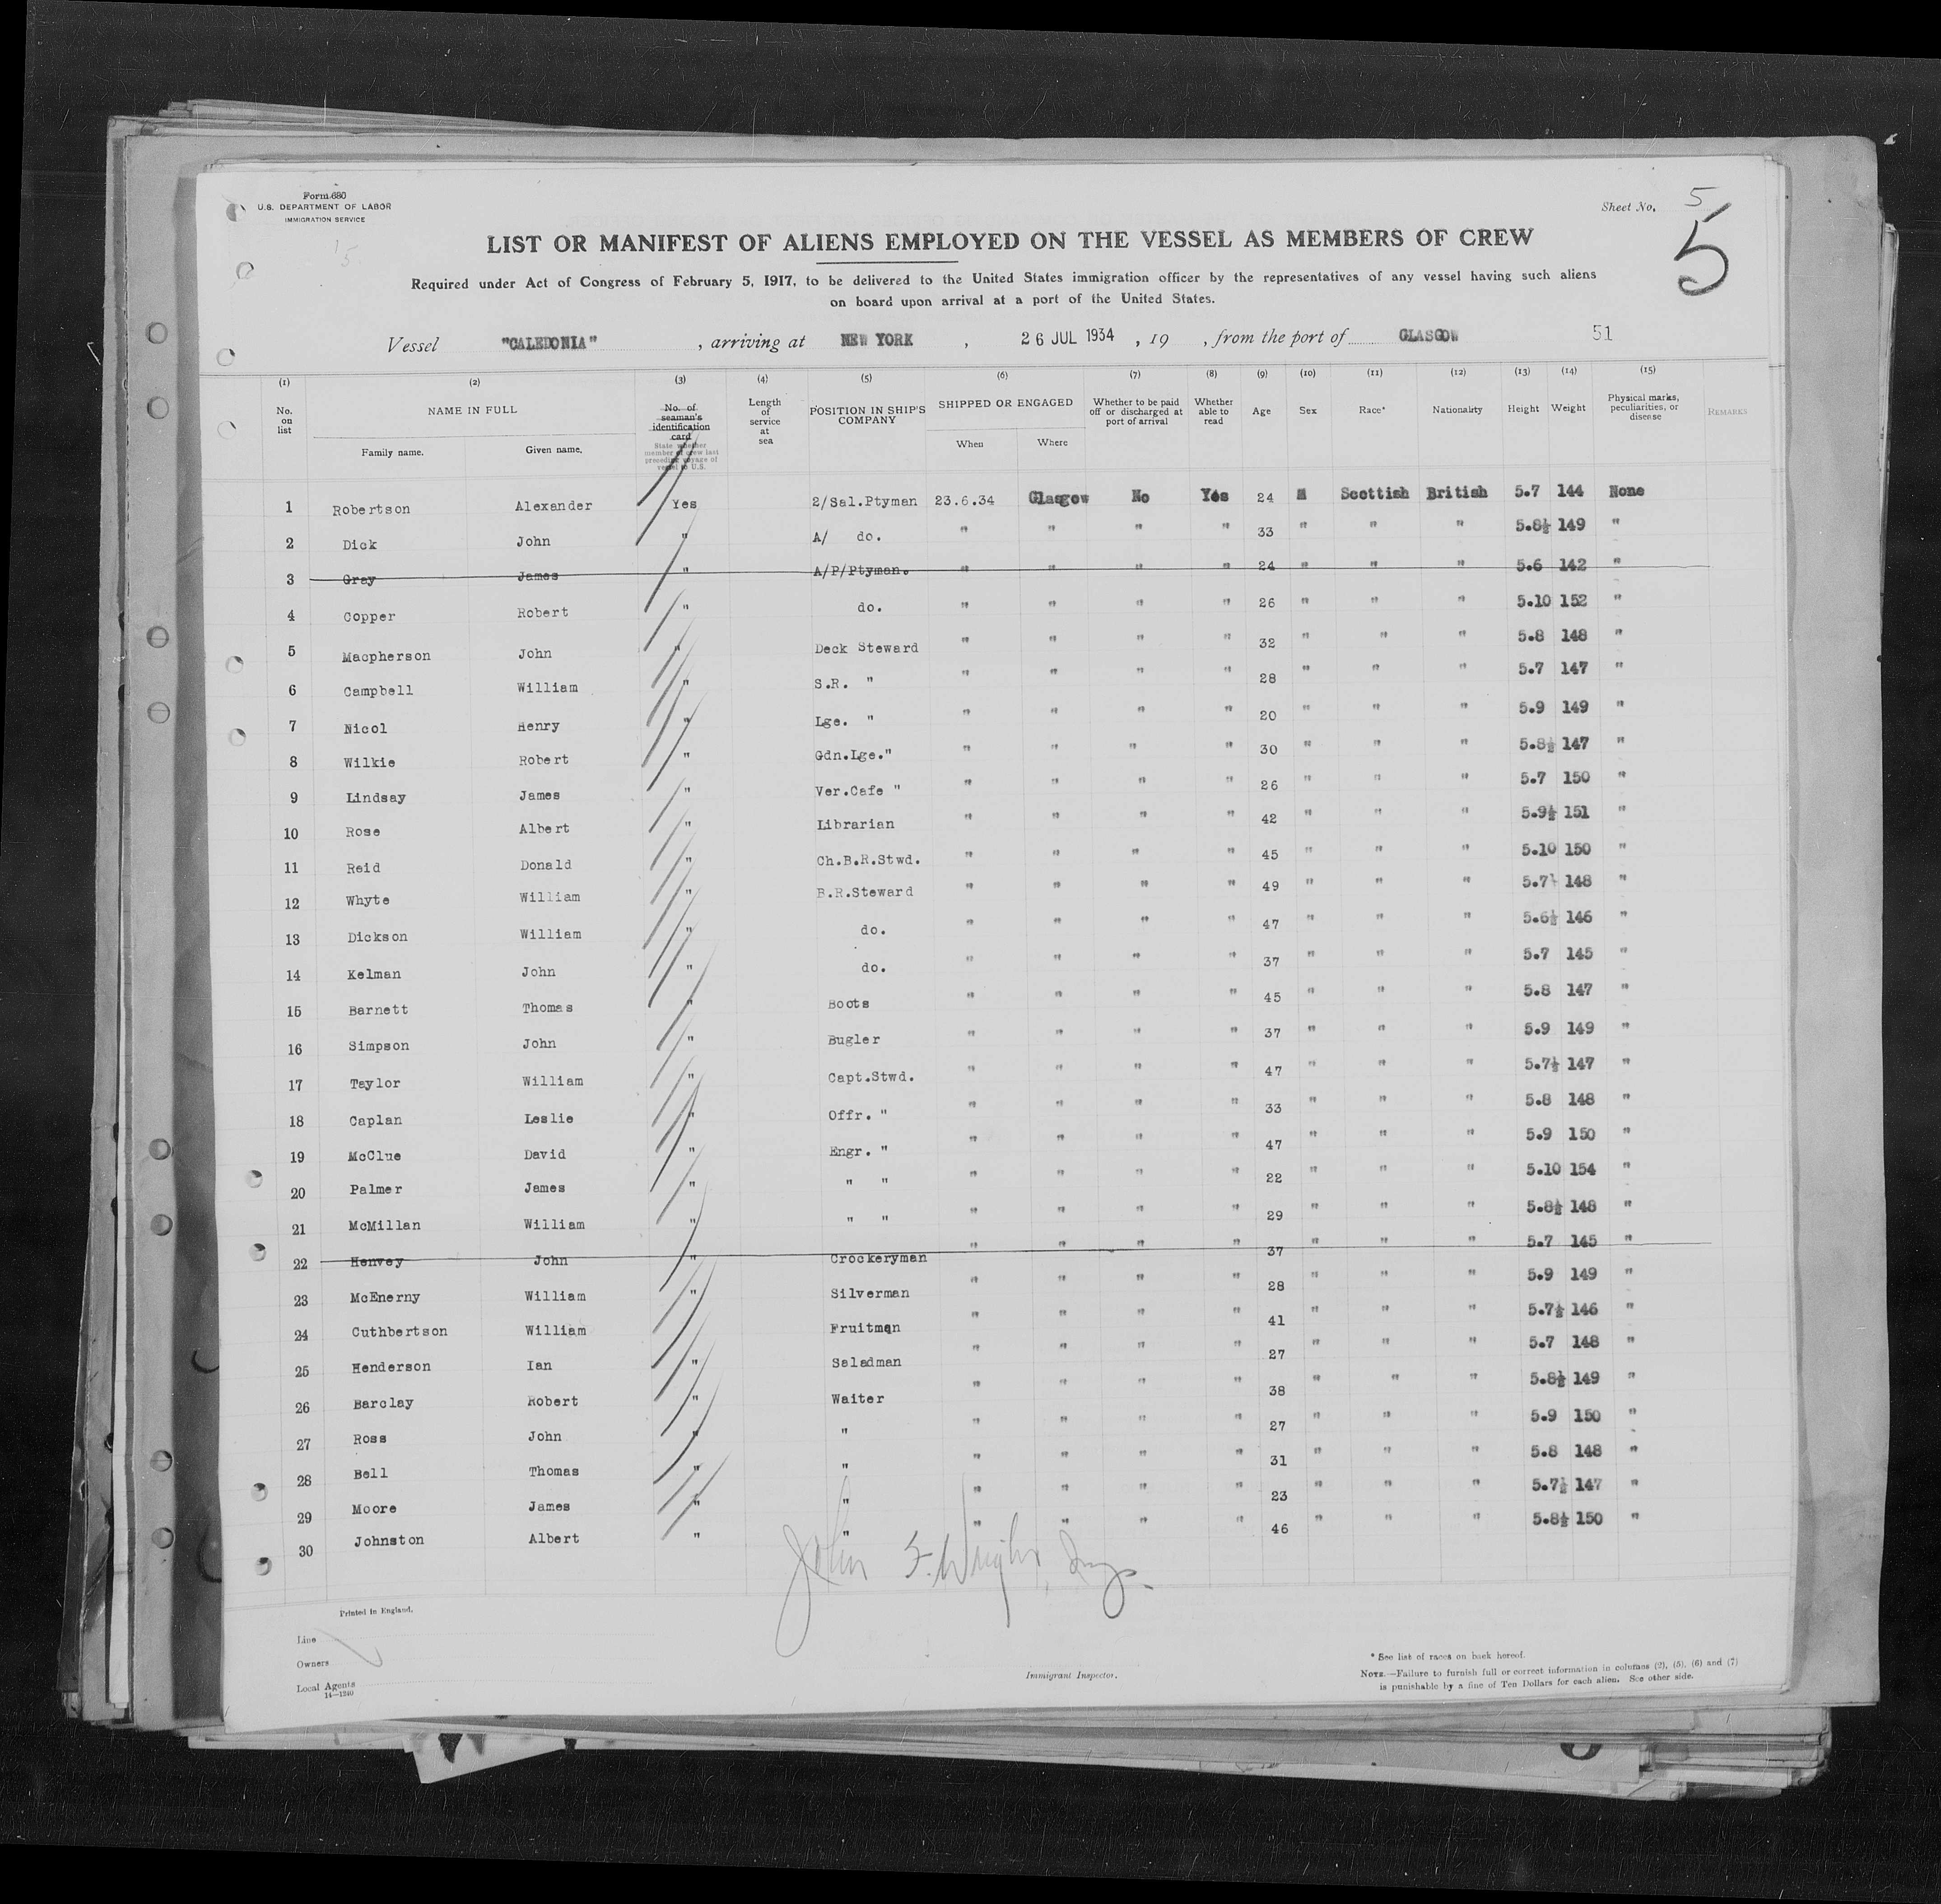 Form 680
U.S. DEPARTMENT OF LABOR
IMMIGRATION SERVICE
Sheet No. 5
5
LIST OR MANIFEST OF ALIENS EMPLOYED ON THE VESSEL AS MEMBERS OF CREW
Required under Act of Congress of February 5, 1917, to be delivered to the United States immigration officer by the representatives of any vessel having such aliens
on board upon arrival at a port of the United States.
Vessel "CALEDONIA" , arriving at NEW YORK , 26 JUL 1934 , 19 , from the port of GLASGOW 51
(1) (2) (3) (4) (5) (6) (7) (8) (9) (10) (11) (12) (13) (14) (15)
No. on list NAME IN FULL Family name. Given name. No. of seaman's identification card State whether member of crew last preceding voyage of vessel to U.S. Length of service at sea POSITION IN SHIP'S COMPANY SHIPPED OR ENGAGED When Where Whether to be paid off or discharged at port of arrival Whether able to read Age Sex Race* Nationality Height Weight Physical marks, peculiarities, or disease REMARKS
1 Robertson Alexander Yes 2/Sal.Ptyman 23.6.34 Glasgow No Yes 24 M Scottish British 5.7 144 None
2 Dick John " A/ do. " " " " 33 " " " 5.8½ 149 "
3 Gray James " A/P/Ptyman. " " " " 24 " " " 5.6 142 "
4 Copper Robert " do. " " " " 26 " " " 5.10 152 "
5 Macpherson John " Deck Steward " " " " 32 " " " 5.8 148 "
6 Campbell William " S.R. " " " " " 28 " " " 5.7 147 "
7 Nicol Henry " Lge. " " " " " 20 " " " 5.9 149 "
8 Wilkie Robert " Gdn.Lge." " " " " 30 " " " 5.8½ 147 "
9 Lindsay James " Ver.Cafe " " " " " 26 " " " 5.7 150 "
10 Rose Albert " Librarian " " " " 42 " " " 5.9½ 151 "
11 Reid Donald " Ch.B.R.Stwd. " " " " 45 " " " 5.10 150 "
12 Whyte William " B.R.Steward " " " " 49 " " " 5.7½ 148 "
13 Dickson William " do. " " " " 47 " " " 5.6½ 146 "
14 Kelman John " do. " " " " 37 " " " 5.7 145 "
15 Barnett Thomas " Boots " " " " 45 " " " 5.8 147 "
16 Simpson John " Bugler " " " " 37 " " " 5.9 149 "
17 Taylor William " Capt.Stwd. " " " " 47 " " " 5.7½ 147 "
18 Caplan Leslie " Offr. " " " " " 33 " " " 5.8 148 "
19 McClue David " Engr. " " " " " 47 " " " 5.9 150 "
20 Palmer James " " " " " " " 22 " " " 5.10 154 "
21 McMillan William " " " " " " " 29 " " " 5.8½ 148 "
22 Henvey John " Crockeryman " " " " 37 " " " 5.7 145 "
23 McEnerny William " Silverman " " " " 28 " " " 5.9 149 "
24 Cuthbertson William Fruitman " " " " 41 " " " 5.7½ 146 "
25 Henderson Ian " Saladman " " " " 27 " " " 5.7 148 "
26 Barclay Robert " Waiter " " " " 38 " " " 5.8½ 149 "
27 Ross John " " " " " " 27 " " " 5.9 150 "
28 Bell Thomas " " " " " " 31 " " " 5.8 148 "
29 Moore James " " " " " " 23 " " " 5.7½ 147 "
30 Johnston Albert " " " " " " 46 " " " 5.8½ 150 "
John F. Wright, Insp.
Printed in England.
Line
Owners
Local Agents
14—1240
Immigrant Inspector.
* See list of races on back hereof.
NOTE.—Failure to furnish full or correct information in columns (2), (5), (6) and (7)
is punishable by a fine of Ten Dollars for each alien. See other side.